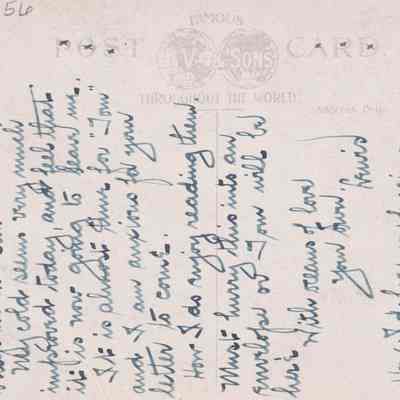 56
FAMOUS
POST CARD.
& SONS
THROUGHOUT THE WORLD
My cold seems very much
improved today, and feel that
it is now going to leave me.
It is almost time for "You"
and I am anxious for your
letter to come.
How I do enjoy reading them
Must hurry this into an
envelope or You will be
here
With oceans of love
Your own